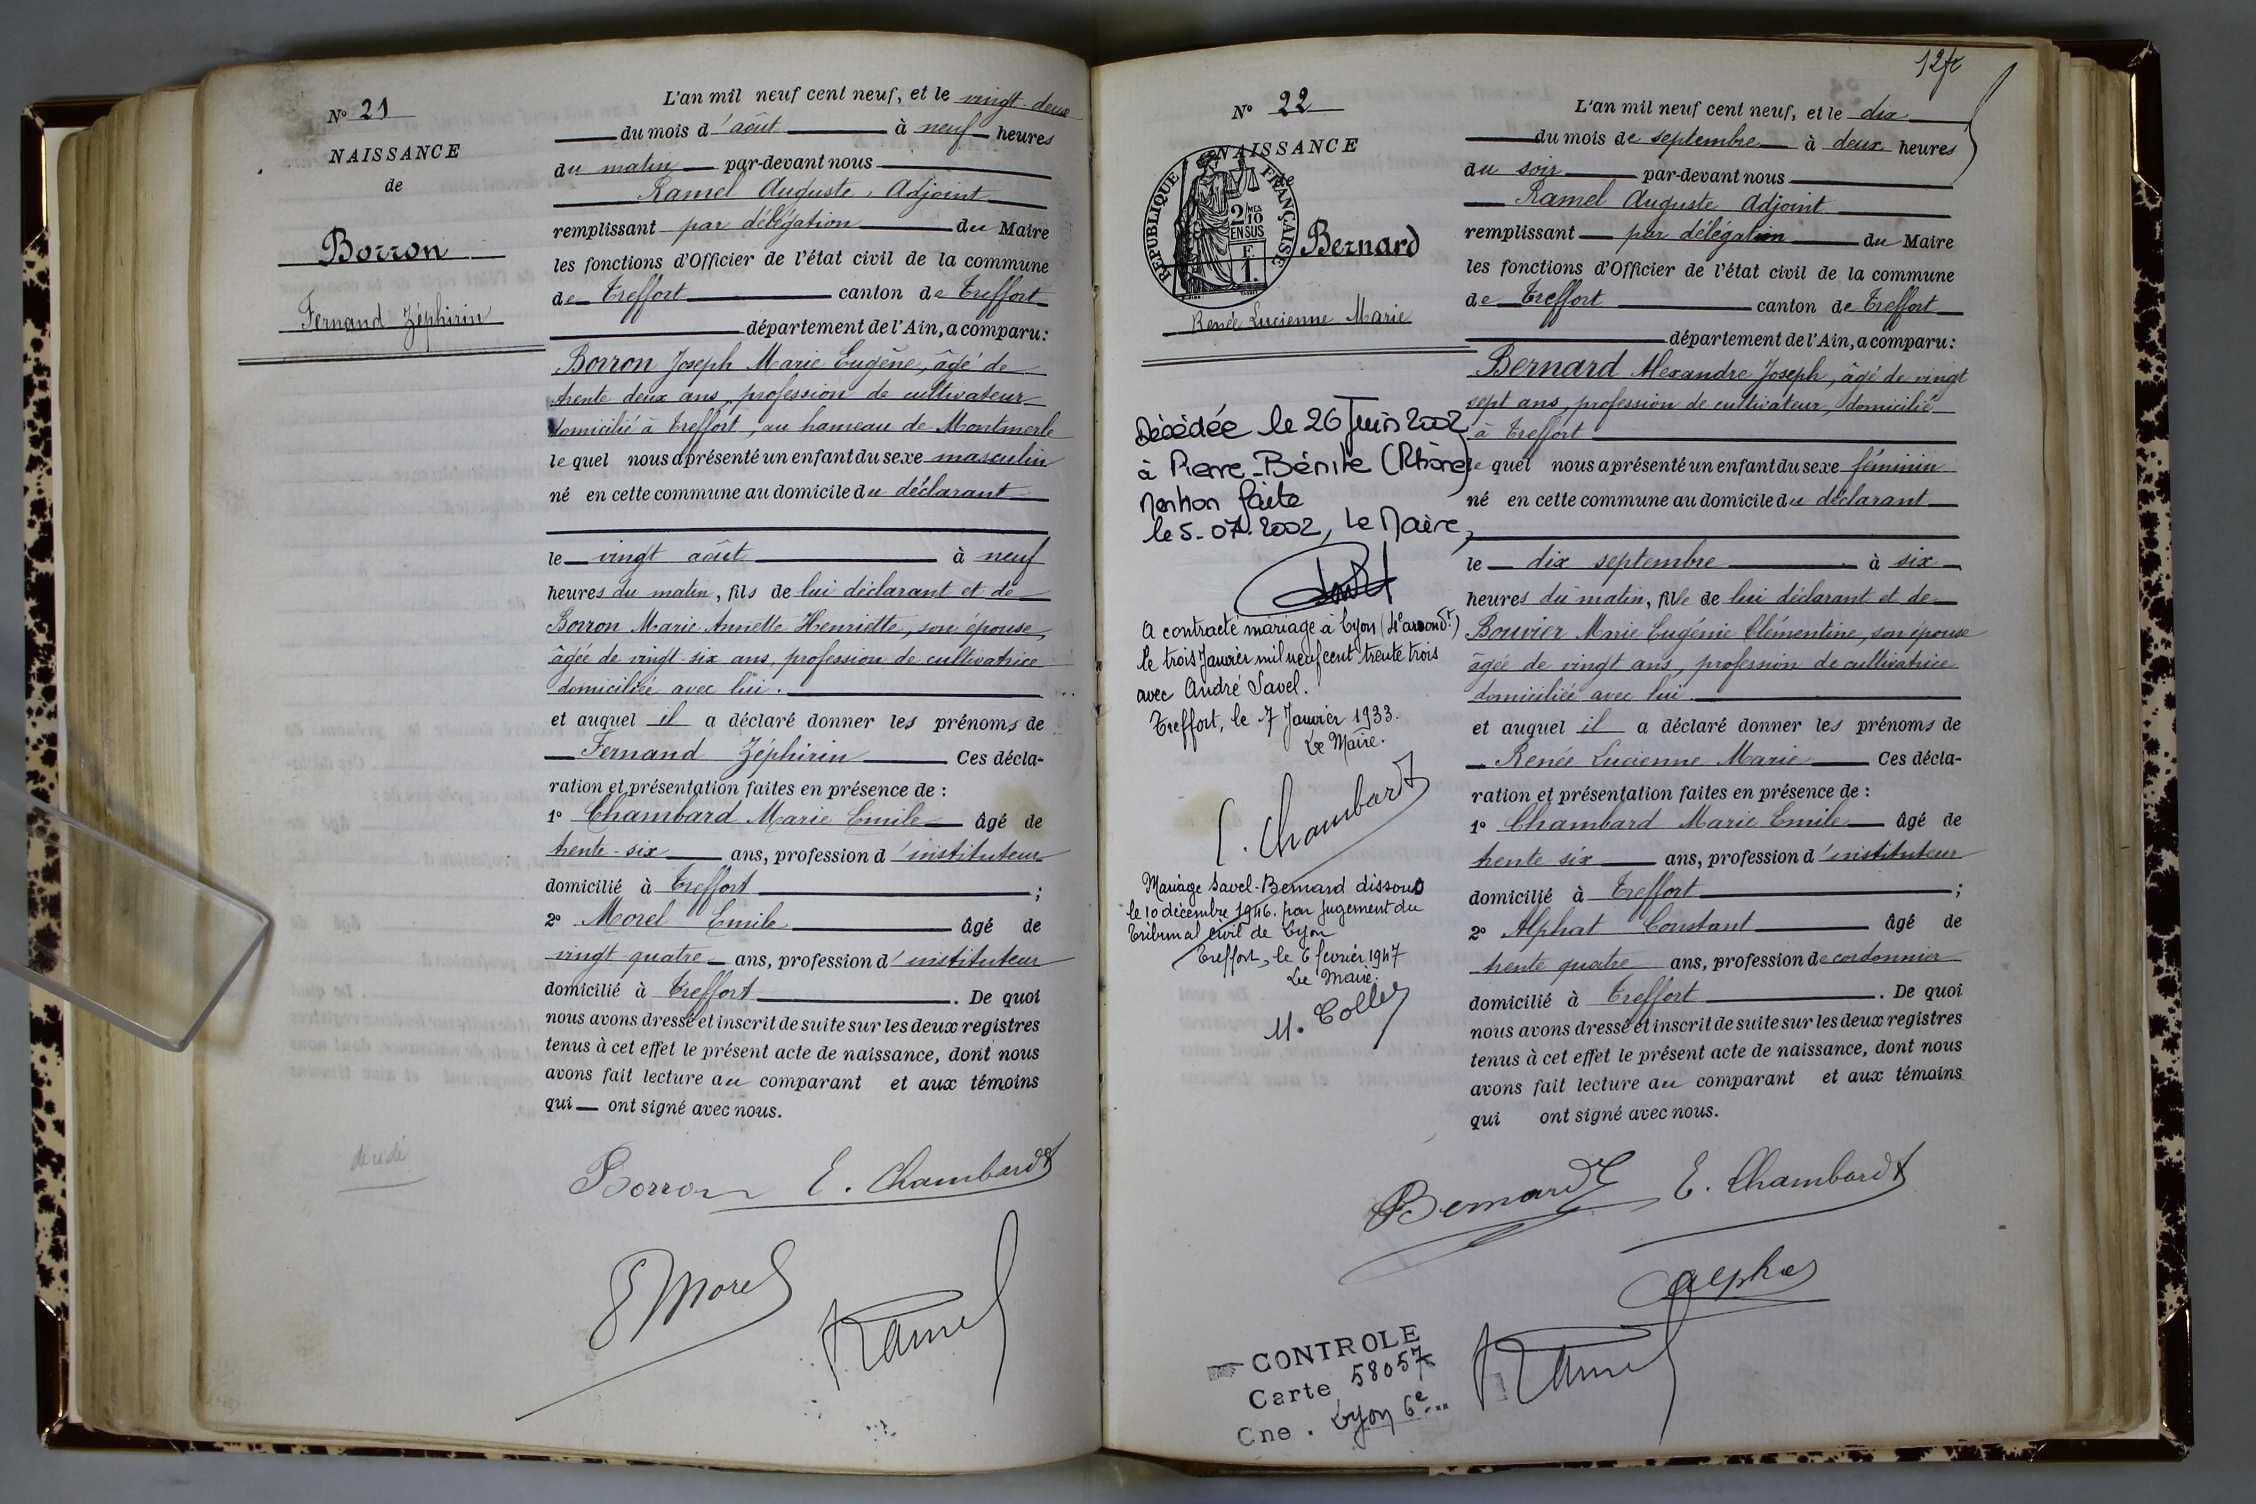 N° 21
NAISSANCE
de
Borron
Fernand Zéphirin
L'an mil neuf cent neuf, et le vingt-deux
du mois d'août à neuf heures
du matin par-devant nous
Ramel Auguste, Adjoint
remplissant par délégation du Maire
les fonctions d'Officier de l'état civil de la commune
de Treffort canton de Treffort
département de l'Ain, a comparu:
Borron Joseph Marie Eugène, âgé de
trente deux ans, profession de cultivateur
domicilié à Treffort, au hameau de Montmerle
le quel nous a présenté un enfant du sexe masculin
né en cette commune au domicile du déclarant
le vingt août à neuf
heures du matin, fils de lui déclarant et de
Borron Marie Annette Henriette, son épouse,
âgée de vingt-six ans, profession de cultivatrice
domiciliée avec lui.
et auquel il a déclaré donner les prénoms de
Fernand Zéphirin Ces décla-
ration et présentation faites en présence de :
1° Chambard Marie Emile âgé de
trente-six ans, profession d'instituteur
domicilié à Treffort ;
2° Morel Emile âgé de
vingt quatre ans, profession d'instituteur
domicilié à Treffort . De quoi
nous avons dressé et inscrit de suite sur les deux registres
tenus à cet effet le présent acte de naissance, dont nous
avons fait lecture au comparant et aux témoins
qui ont signé avec nous.
Borron E. Chambard
E Morel
Ramel
12
N° 22
NAISSANCE
de
REPUBLIQUE FRANÇAISE
2/10
EN SUS
F
1.
Bernard
Renée Lucienne Marie
Décédée le 26 Juin 2002
à Pierre-Bénite (Rhône)
Mention faite
le 5-07-2002, Le Maire,
A contracté mariage à Lyon (4e arrondt)
le trois Janvier mil neuf cent trente trois
avec André Savel.
Treffort, le 7 Janvier 1933.
Le Maire.
E. Chambard
Mariage Savel-Bernard dissous
le 10 décembre 1946. par jugement du
Tribunal civil de Lyon
Treffort, le 6 février 1947
Le Maire.
L'an mil neuf cent neuf, et le dix
du mois de septembre à deux heures
du soir par-devant nous
Ramel Auguste Adjoint
remplissant par délégation du Maire
les fonctions d'Officier de l'état civil de la commune
de Treffort canton de Treffort
département de l'Ain, a comparu:
Bernard Alexandre Joseph, âgé de vingt
sept ans, profession de cultivateur, domicilié
à Treffort
le quel nous a présenté un enfant du sexe féminin
né en cette commune au domicile du déclarant
le dix septembre à six
heures du matin, fille de lui déclarant et de
Bouvier Marie Eugénie Clémentine, son épouse
âgée de vingt ans, profession de cultivatrice
domiciliée avec lui
et auquel il a déclaré donner les prénoms de
Renée Lucienne Marie Ces décla-
ration et présentation faites en présence de :
1° Chambard Marie Emile âgé de
trente six ans, profession d'instituteur
domicilié à Treffort ;
2° Alphat Constant âgé de
trente quatre ans, profession de cordonnier
domicilié à Treffort . De quoi
nous avons dressé et inscrit de suite sur les deux registres
tenus à cet effet le présent acte de naissance, dont nous
avons fait lecture au comparant et aux témoins
qui ont signé avec nous.
Bernard E. Chambard
Alphat
Ramel
CONTROLE
Carte 58057
Cne. Lyon 6e